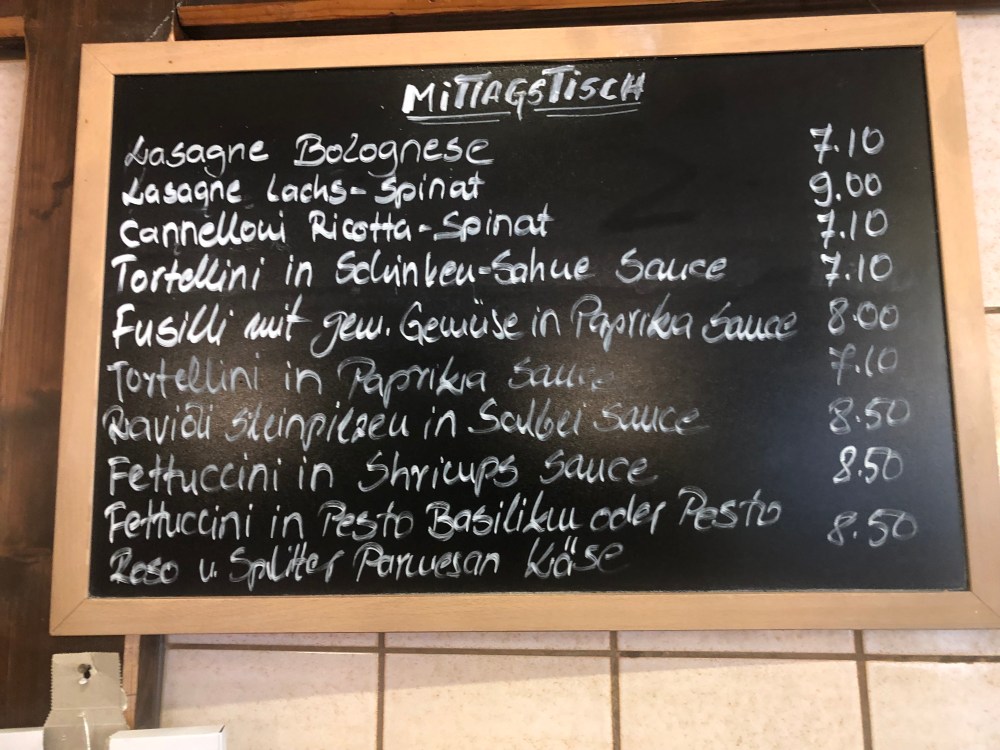 MITTAGSTISCH
Lasagne Bolognese 7.10
Lasagne Lachs-Spinat 9.00
Cannelloni Ricotta-Spinat 7.10
Tortellini in Schinken-Sahne Sauce 7.10
Fusilli mit gem. Gemüse in Paprika Sauce 8.00
Tortellini in Paprika Sauce 7.10
Ravioli Steinpilzen in Salbei Sauce 8.50
Fettuccini in Shrimps Sauce 8.50
Fettuccini in Pesto Basilikum oder Pesto 8.50
Roso u. Splitter Parmesan Käse